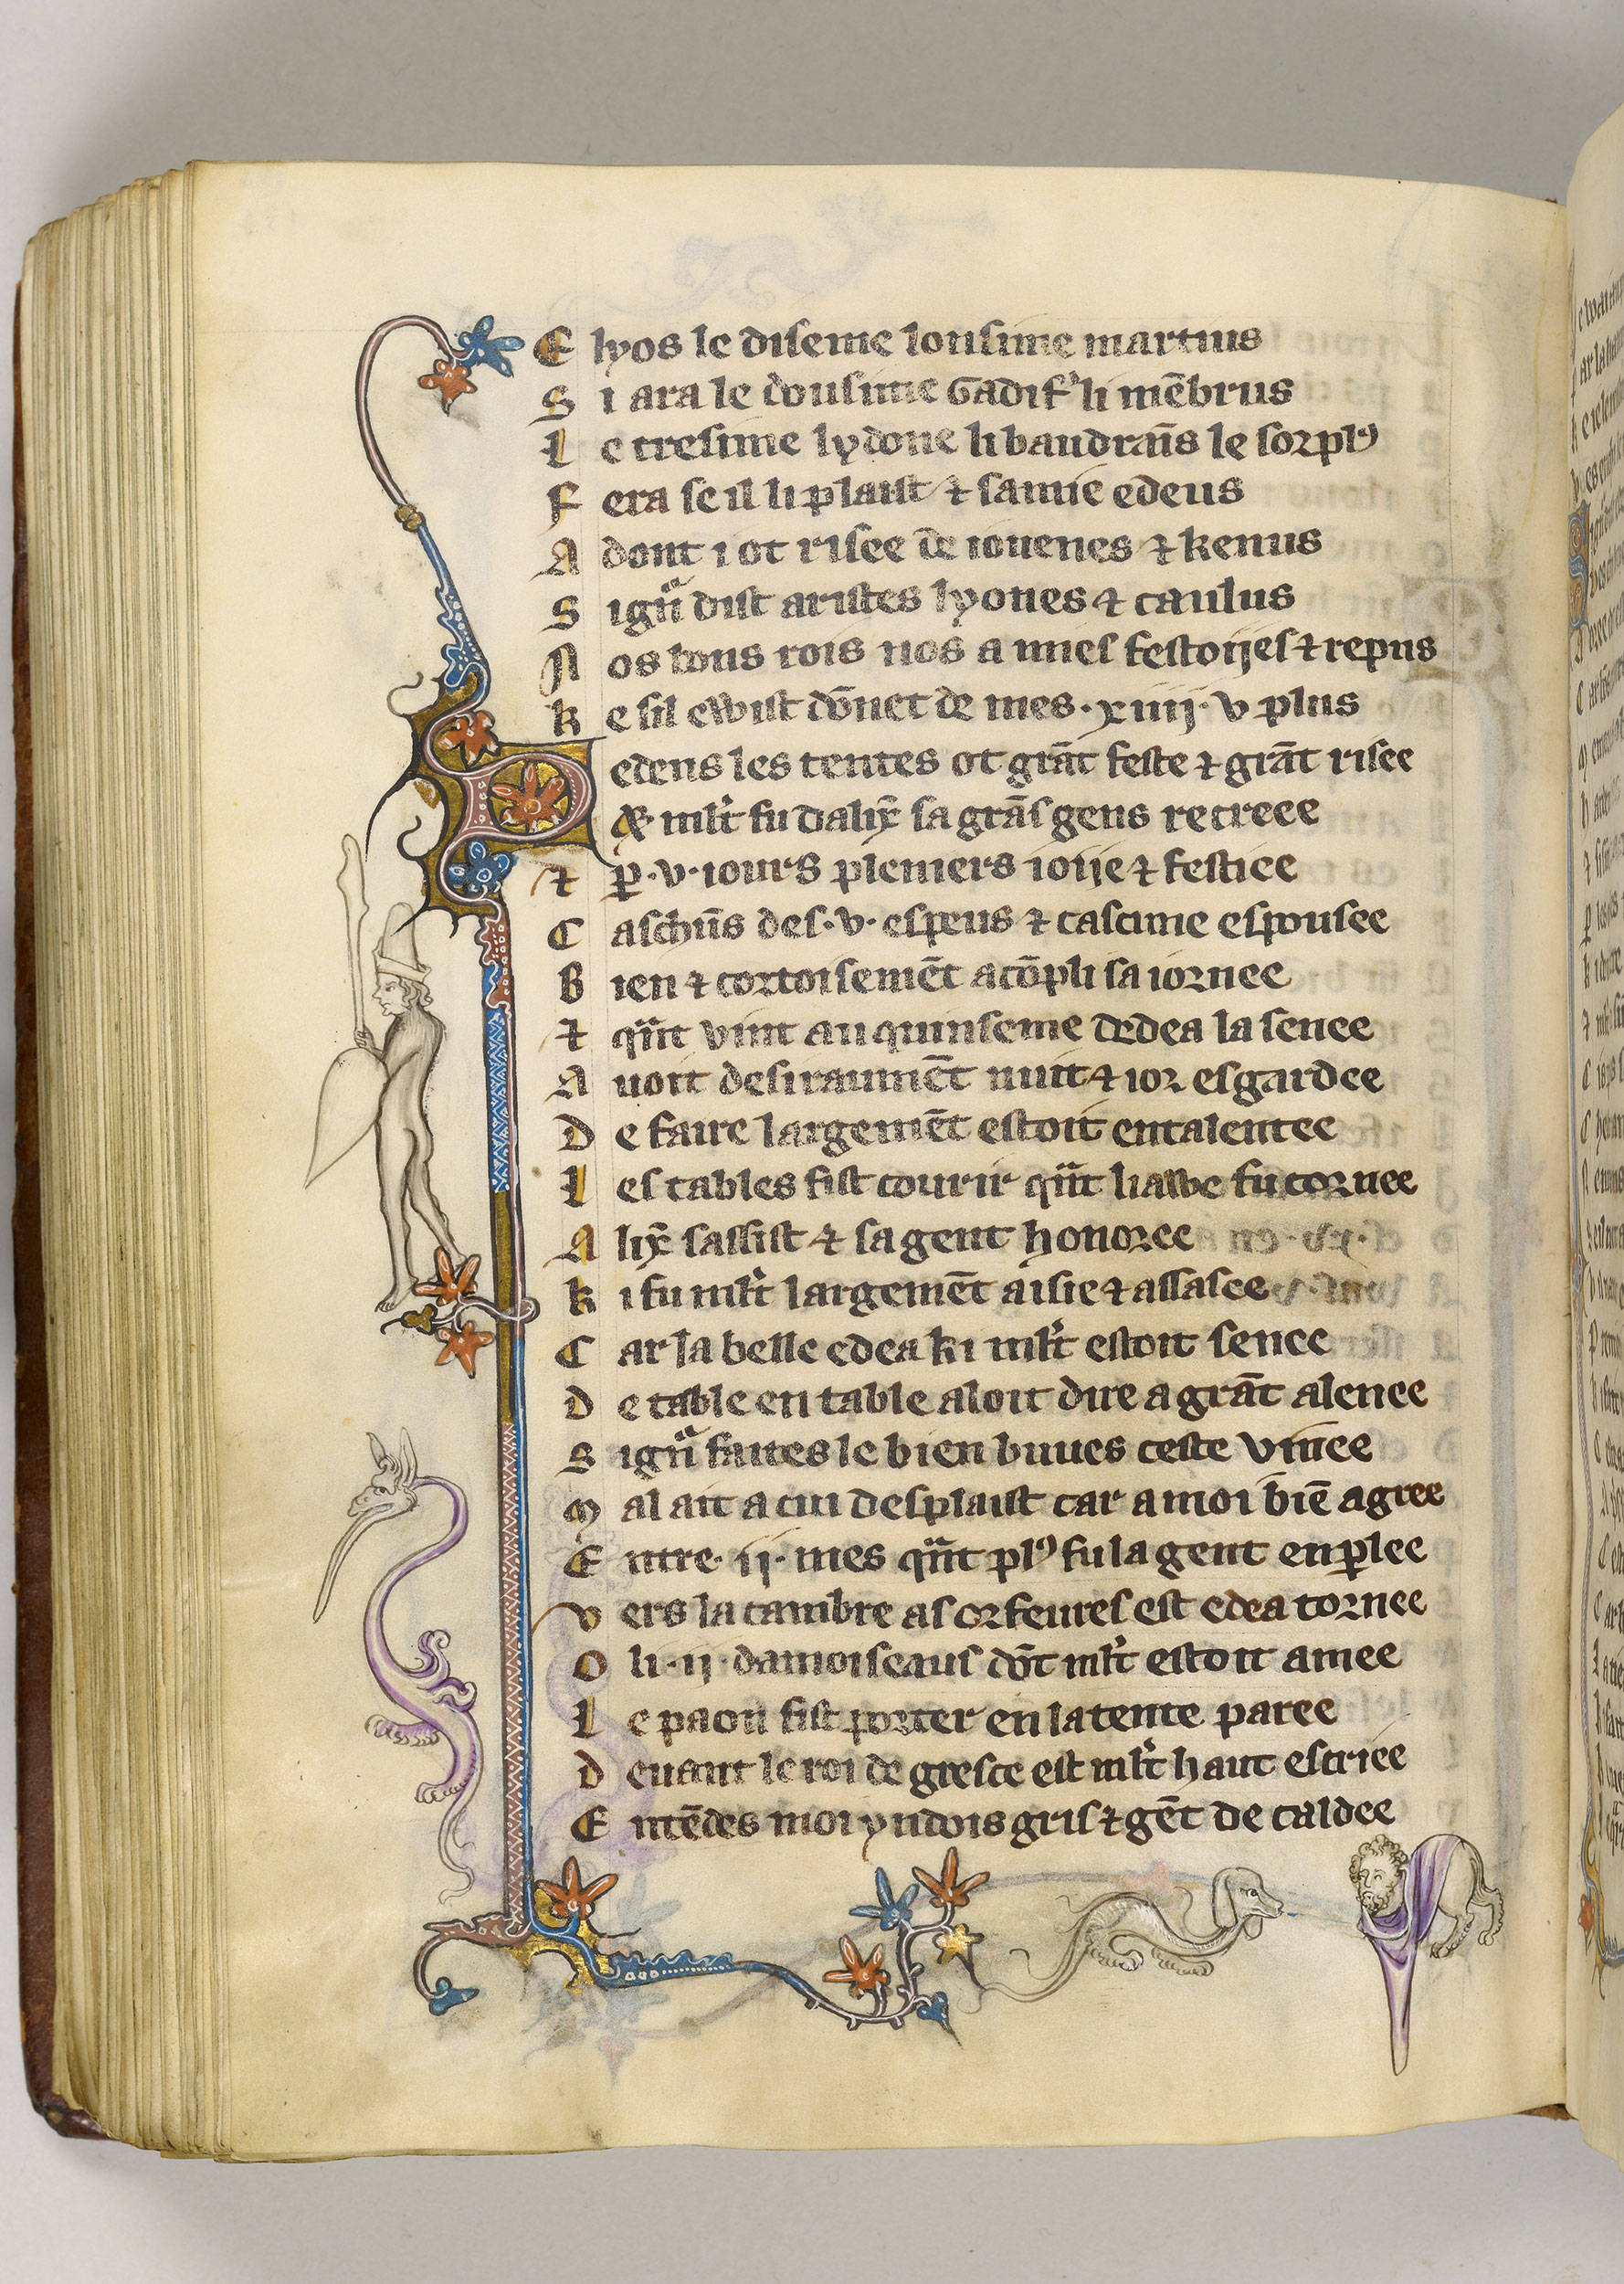 E lyos le diseme lonsime martius
S i ara le dousime Gadif' li mēbrus
L e tresime lydone li baudrāis le sorpl9
F era se il li plaist ⁊ samie edeus
A dont i ot risee de iouenes ⁊ kenus
S ignͬ dist aristes lyones ⁊ caulus
N os bons rois nos a mies festoijes ⁊ repus
K e sil ewist dōnet de mes · xiiij · v plus
D edens les tentes ot grāt feste ⁊ grāt risee
D e mlt̓ fu dalix̄ sa grāſ gens recreee
⁊ ꝑ · v · iours pleniers ioije ⁊ festiee
C aschūs des · v · espeus ⁊ cascune espousee
B ien ⁊ cortoisemēt acōpli sa iornee
⁊ qͣnt vint au quinseme dedea la senee
A uoit desiraumēt nuit ⁊ ior esgardee
D e faire largemēt estoit entalentee
L es tables fist courir qͣnt liawe fu cornee
A lix̄ sassist ⁊ sa gent honoree
K i fu mlt̓ largemēt aisie ⁊ assasee
C ar la belle edea ki mlt̓ estoit senee
D e table en table aloit dire a grāt alenee
S ignͬ faites le bien buues ceste vinee
M al ait a cui desplaist car a moi biē agree
E ntre · ij · mes qͣnt pl9 fu la gent enꝑlee
V ers la cambre as orfeures est edea tornee
O li · ij · damoiseaus dōt mlt̓ estoit amee
L e paon fist porter en la tente paree
D euant le roi de gresce est mlt̓ haut escriee
E ntēdes moi yndois gris ⁊ gēt de caldee